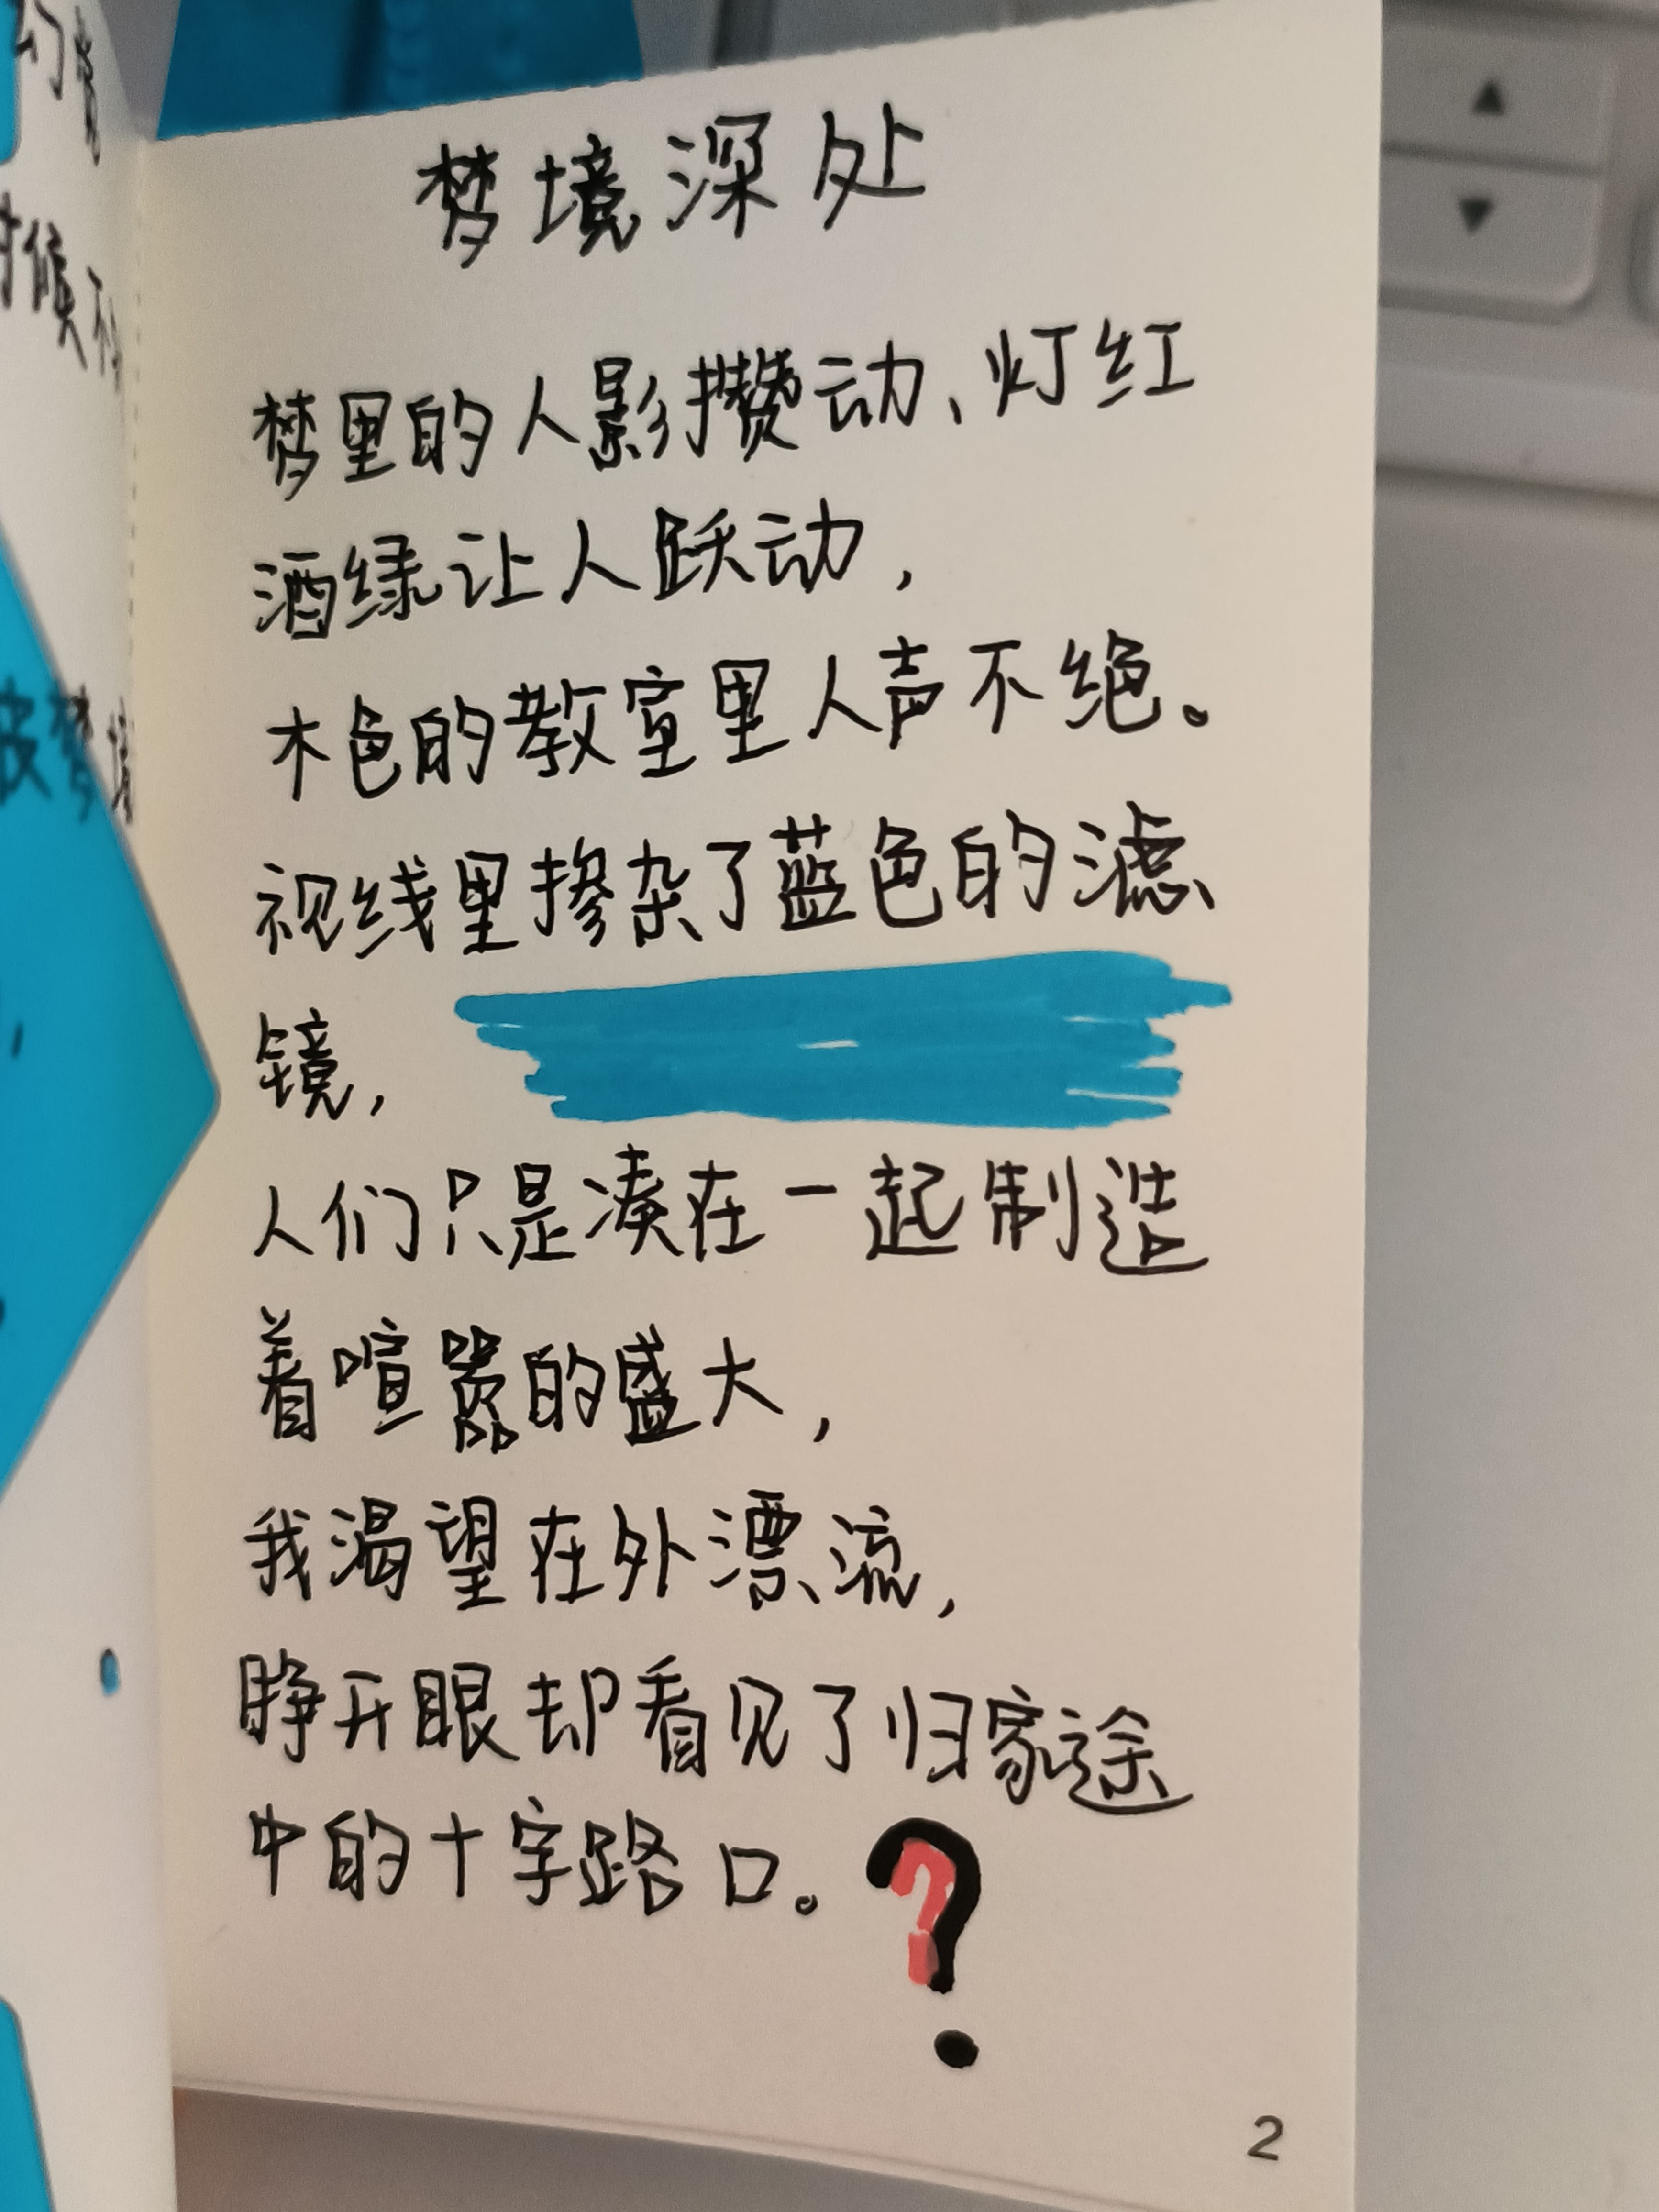 梦境深处
梦里的人影攒动、灯红
酒绿让人跃动，
木色的教室里人声不绝。
视线里掺杂了蓝色的滤
镜，
人们只是凑在一起制造
着喧嚣的盛大，
我渴望在外漂流，
睁开眼却看见了归家途
中的十字路口。?
2
时候不
皮梦境